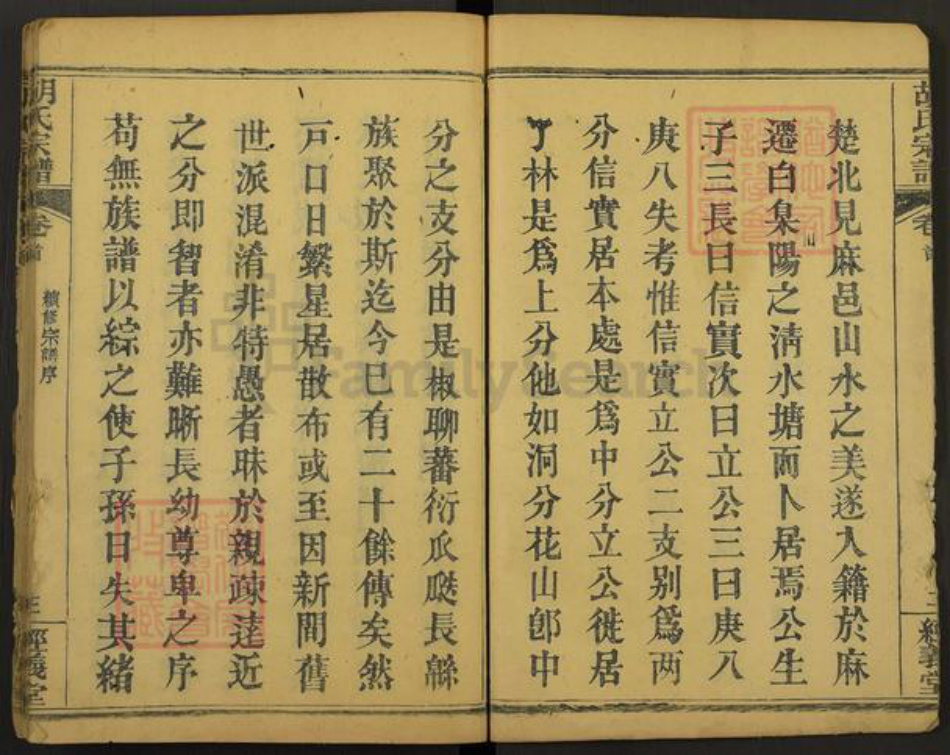 胡氏宗譜
卷首
經義堂
楚北見麻邑山水之美遂入籍於麻
遷白臬陽之淸水塘而卜居焉公生
子三長曰信實次曰立公三曰庚八
庚八失考惟信實立公二支別爲两
分信實居本處是爲中分立公徙居
了林是爲上分他如洞分花山郎中
分之支分由是椒聊蕃衍瓜瓞長緜
族聚於斯迄今巳有二十餘傳矣然
戸口日繁星居散布或至因新間舊
世派混淆非特愚者昧於親疎逺近
之分即智者亦難晰長幼尊卑之序
苟無族譜以綜之使子孫日失其緒
胡氏宗譜
卷首
續修宗譜序
經義堂
FamilySearch